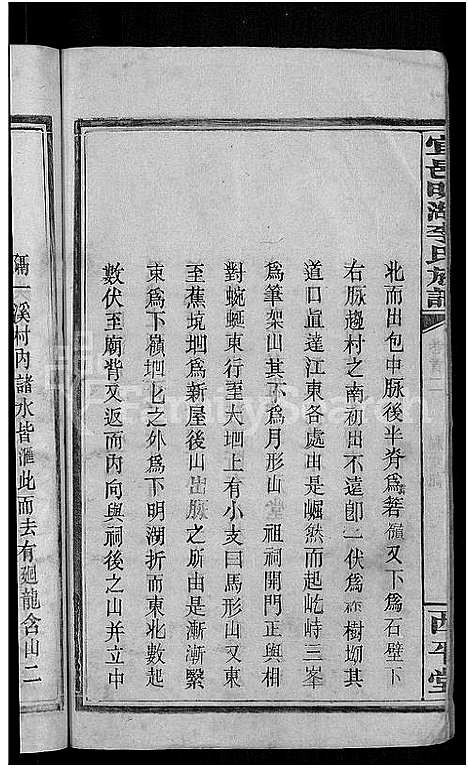 宜邑明湖李氏族譜
西平堂
北而出包中脉後半脊爲箬嶺又下爲石壁下
右脉趨村之南初出不遠卽一伏爲 樹坳其
道口眞達江東各處出是崛然而起屹峙三峯
爲筆架山其下爲月形山堂祖祠開門正與相
對蜿蜒東行至大坳上有小支曰馬形山又東
至蕉坑坳爲新屋後山出脉之所由是漸漸繄
束爲下嶺坳七之外爲下明湖折而東北數起
數伏至廟背又返而內向與祠後之山並立中
隔一溪村內諸水皆滙此而去有廻龍含山二
FamilySearch